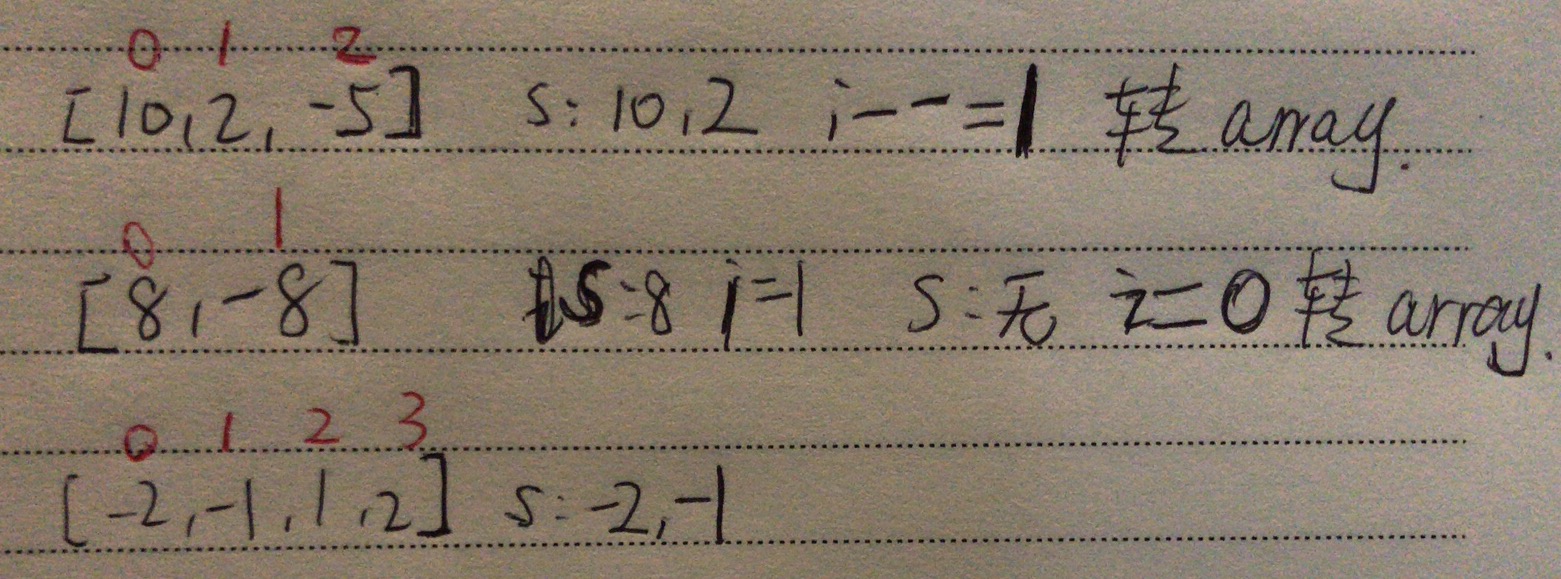 0 1 2
[10,2,-5] S:10,2 i--=1 转array.
0 1
[8,-8] S:8 i=1 S:无 i=0 转array.
0 1 2 3
[-2,-1,1,2] S:-2,-1